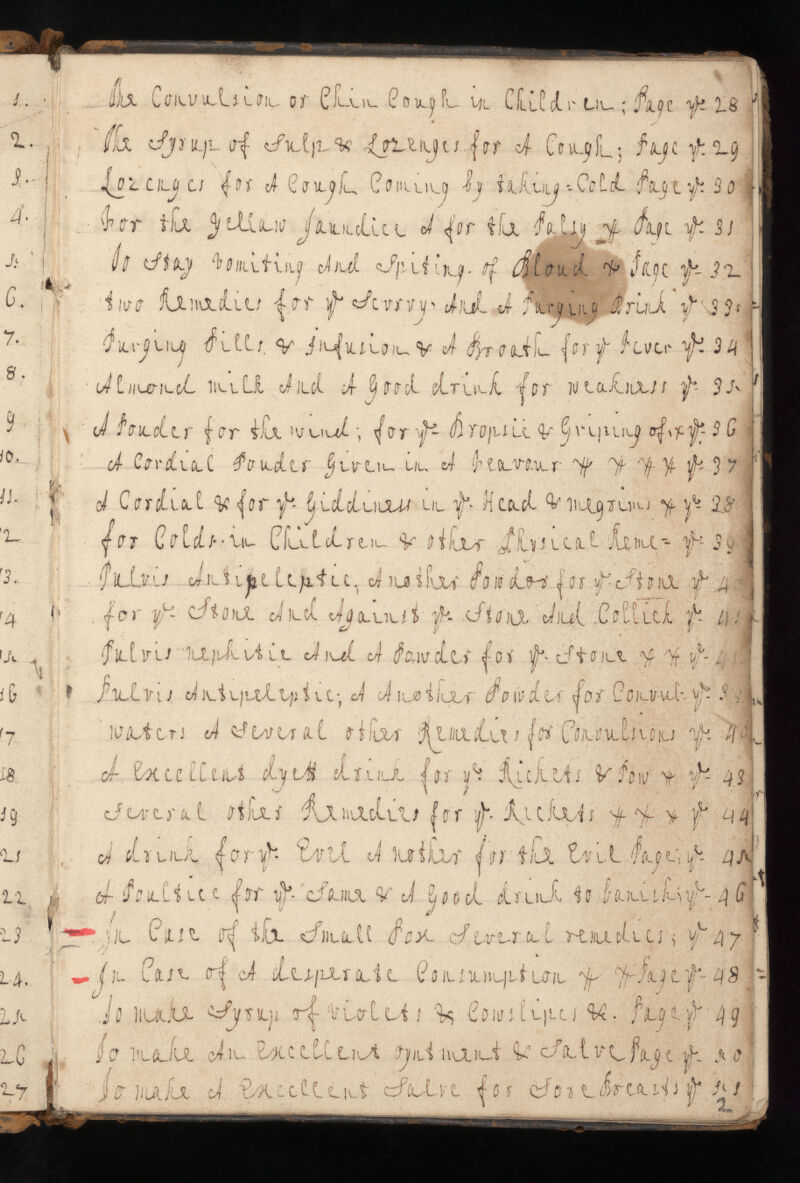 The Convulsion or Chin Cough in Children; Page ye 28
The Syrup of Sulp & Lozenges for A Cough; Page ye 29
Lozenges for A Cough Coming by taking=Cold Page ye 30
For the Yellow Jaundice A for the Palsy Page ye 31
To Stay Vomiting And Spiting of Bloud Page ye 32
two Remedies for ye Scurvy And A Purging Drink ye 33
Purging Pills & Infusion & A Broath for ye Fever ye 34
Almond milk And A Good drink for weakness ye 35
A Pouder for the wind; for ye Dropsie & Griping of ye 36
A Cordial Pouder Given in A Feavour ye 37
A Cordial & for ye Giddiness in ye Head & megrims ye 38
for Colds in Children & other Physical Reme= ye 39
Pulvis Antipeleptic, Another Powder for ye Stone ye
for ye Stone And Against ye Stone And Collick ye
Pulvis nephitic And A Powder for ye Stone ye
Pulvis Antipeleptic; A Another Powder for Convul- ye
waters A Several other Remedies for Convulsions ye
A Excellent dyett drink for ye Rickets & Pow ye 43
Several other Remedies for ye Rickets ye 44
A drink for ye Evil Another for the Evil Page; ye 45
A Poultice for ye Same & A Good drink to banish; ye 46
In Case of the Small Pox Several remedies; ye 47
In Case of A desperate Consumption Page ye 48
To make Syrup of Violets & Cowslipes &. Page ye 49
To make An Excellent oyntment & Salve Page ye 50
To make A Excellent Salve for Sore Breasts ye 51
2
1.
2.
3.
4.
5.
6.
7.
8.
9
10.
11.
12
13.
14
15
16
17
18
19
21
22
23
24.
25
26
27